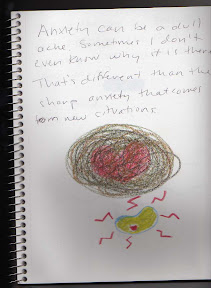 Anxiety can be a dull
ache. Sometimes I don't
even know why it is there
That's different than the
sharp anxiety that comes
from new situations.